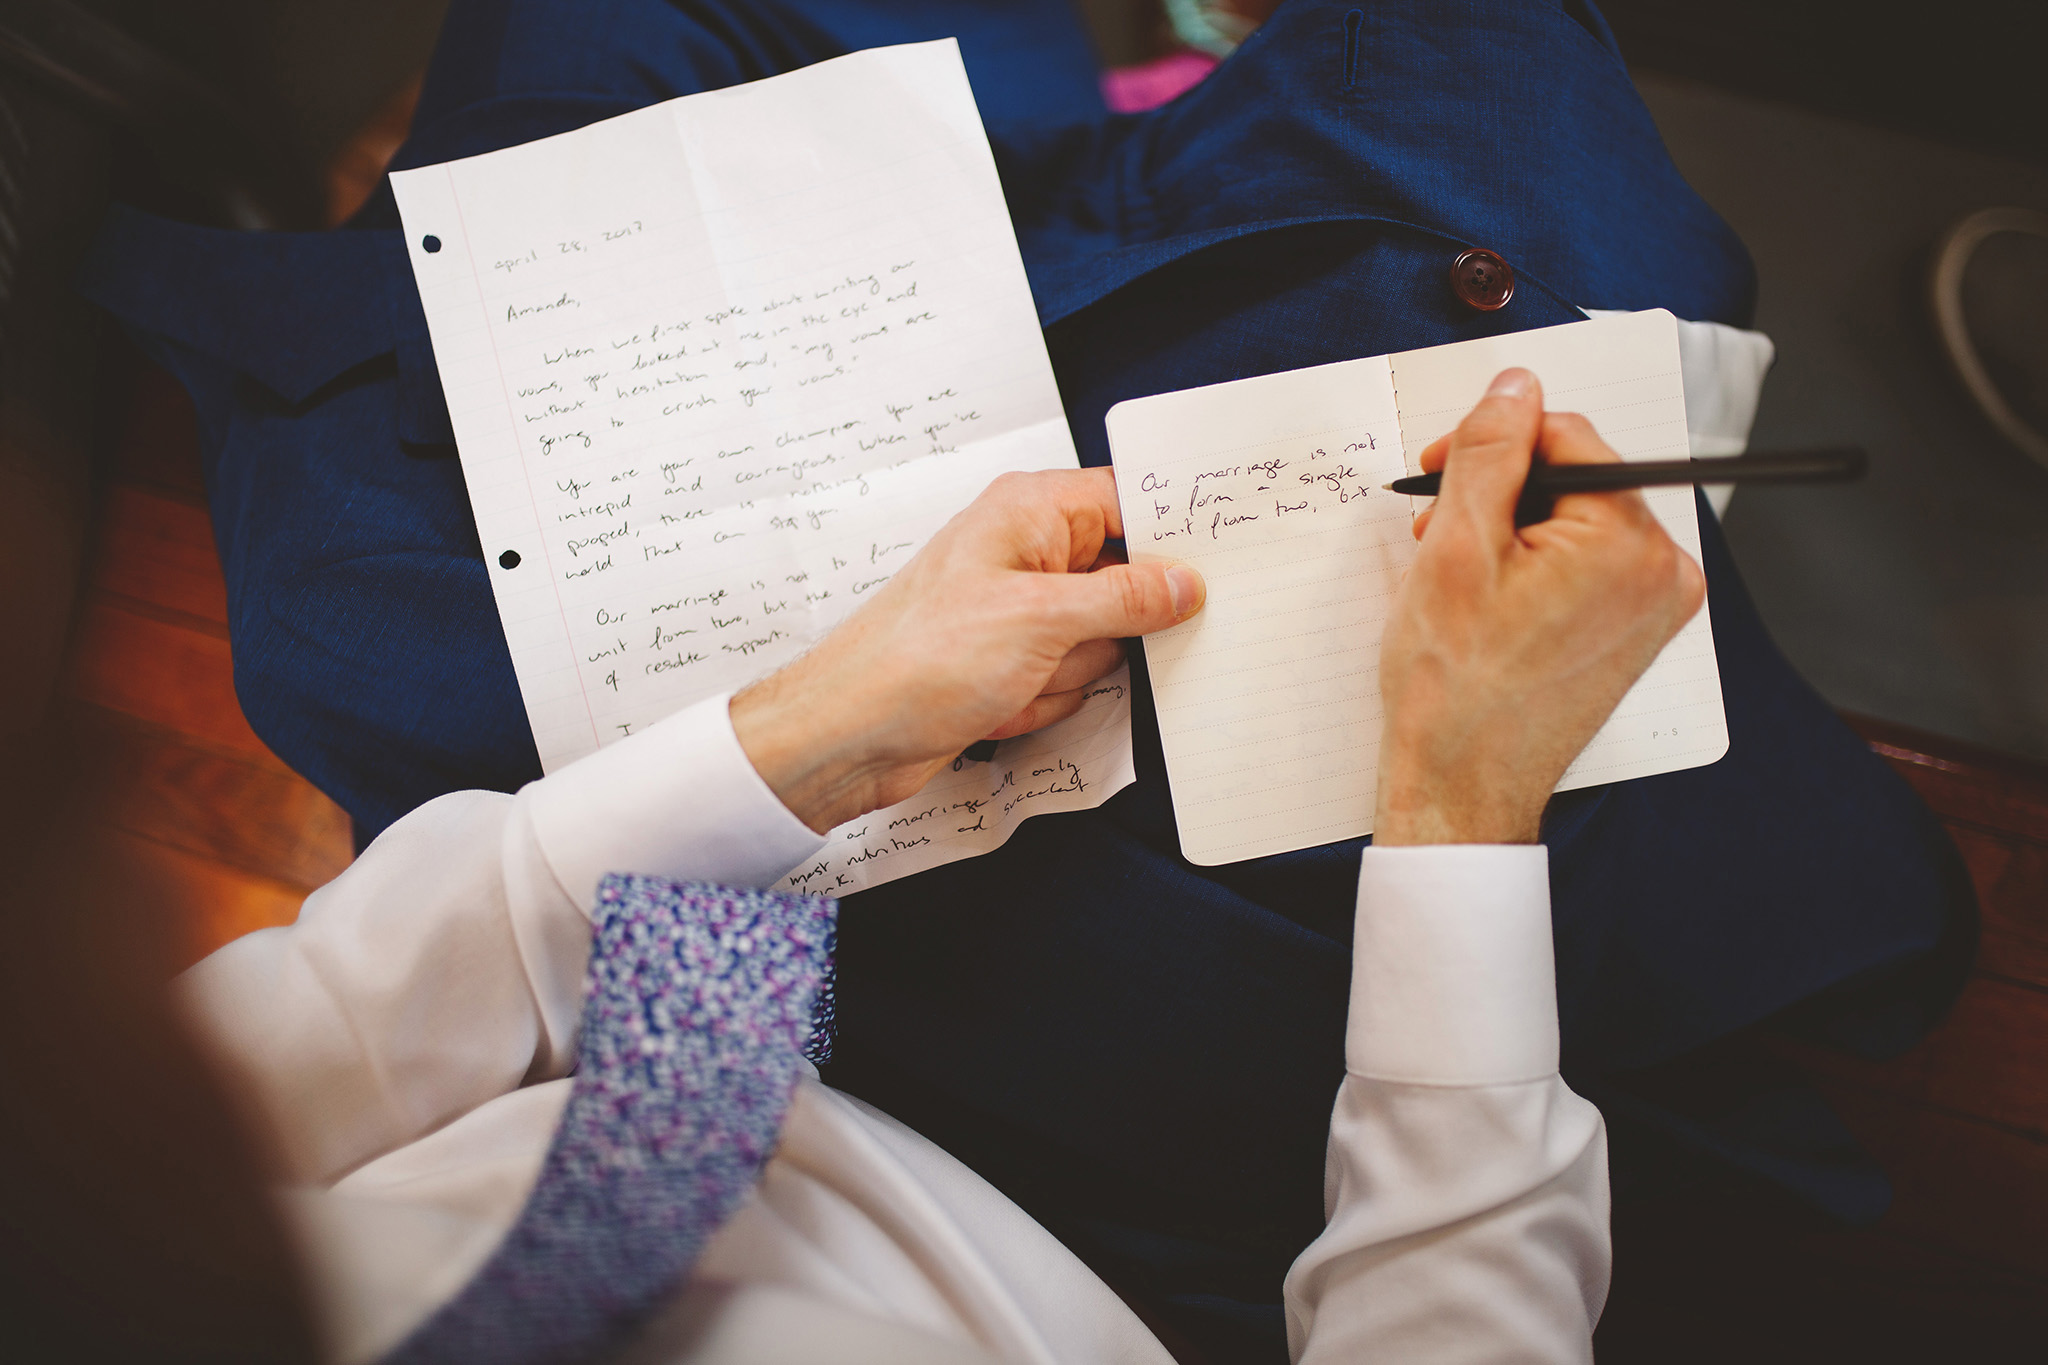 april 28, 2017
Amanda,
When we first spoke about writing our
vows, you looked at me in the eye and
without hesitation said, "my vows are
going to crush your vows."
You are your own champion. You are
intrepid and courageous. When you've
pooped, there is nothing in the
world that can stop you.
Our marriage is not to form
unit from two, but the com
of resolute support.
I
our marriage will only
most nutritious and succulent
drink.
Our marriage is not
to form a single
unit from two, but
P-S